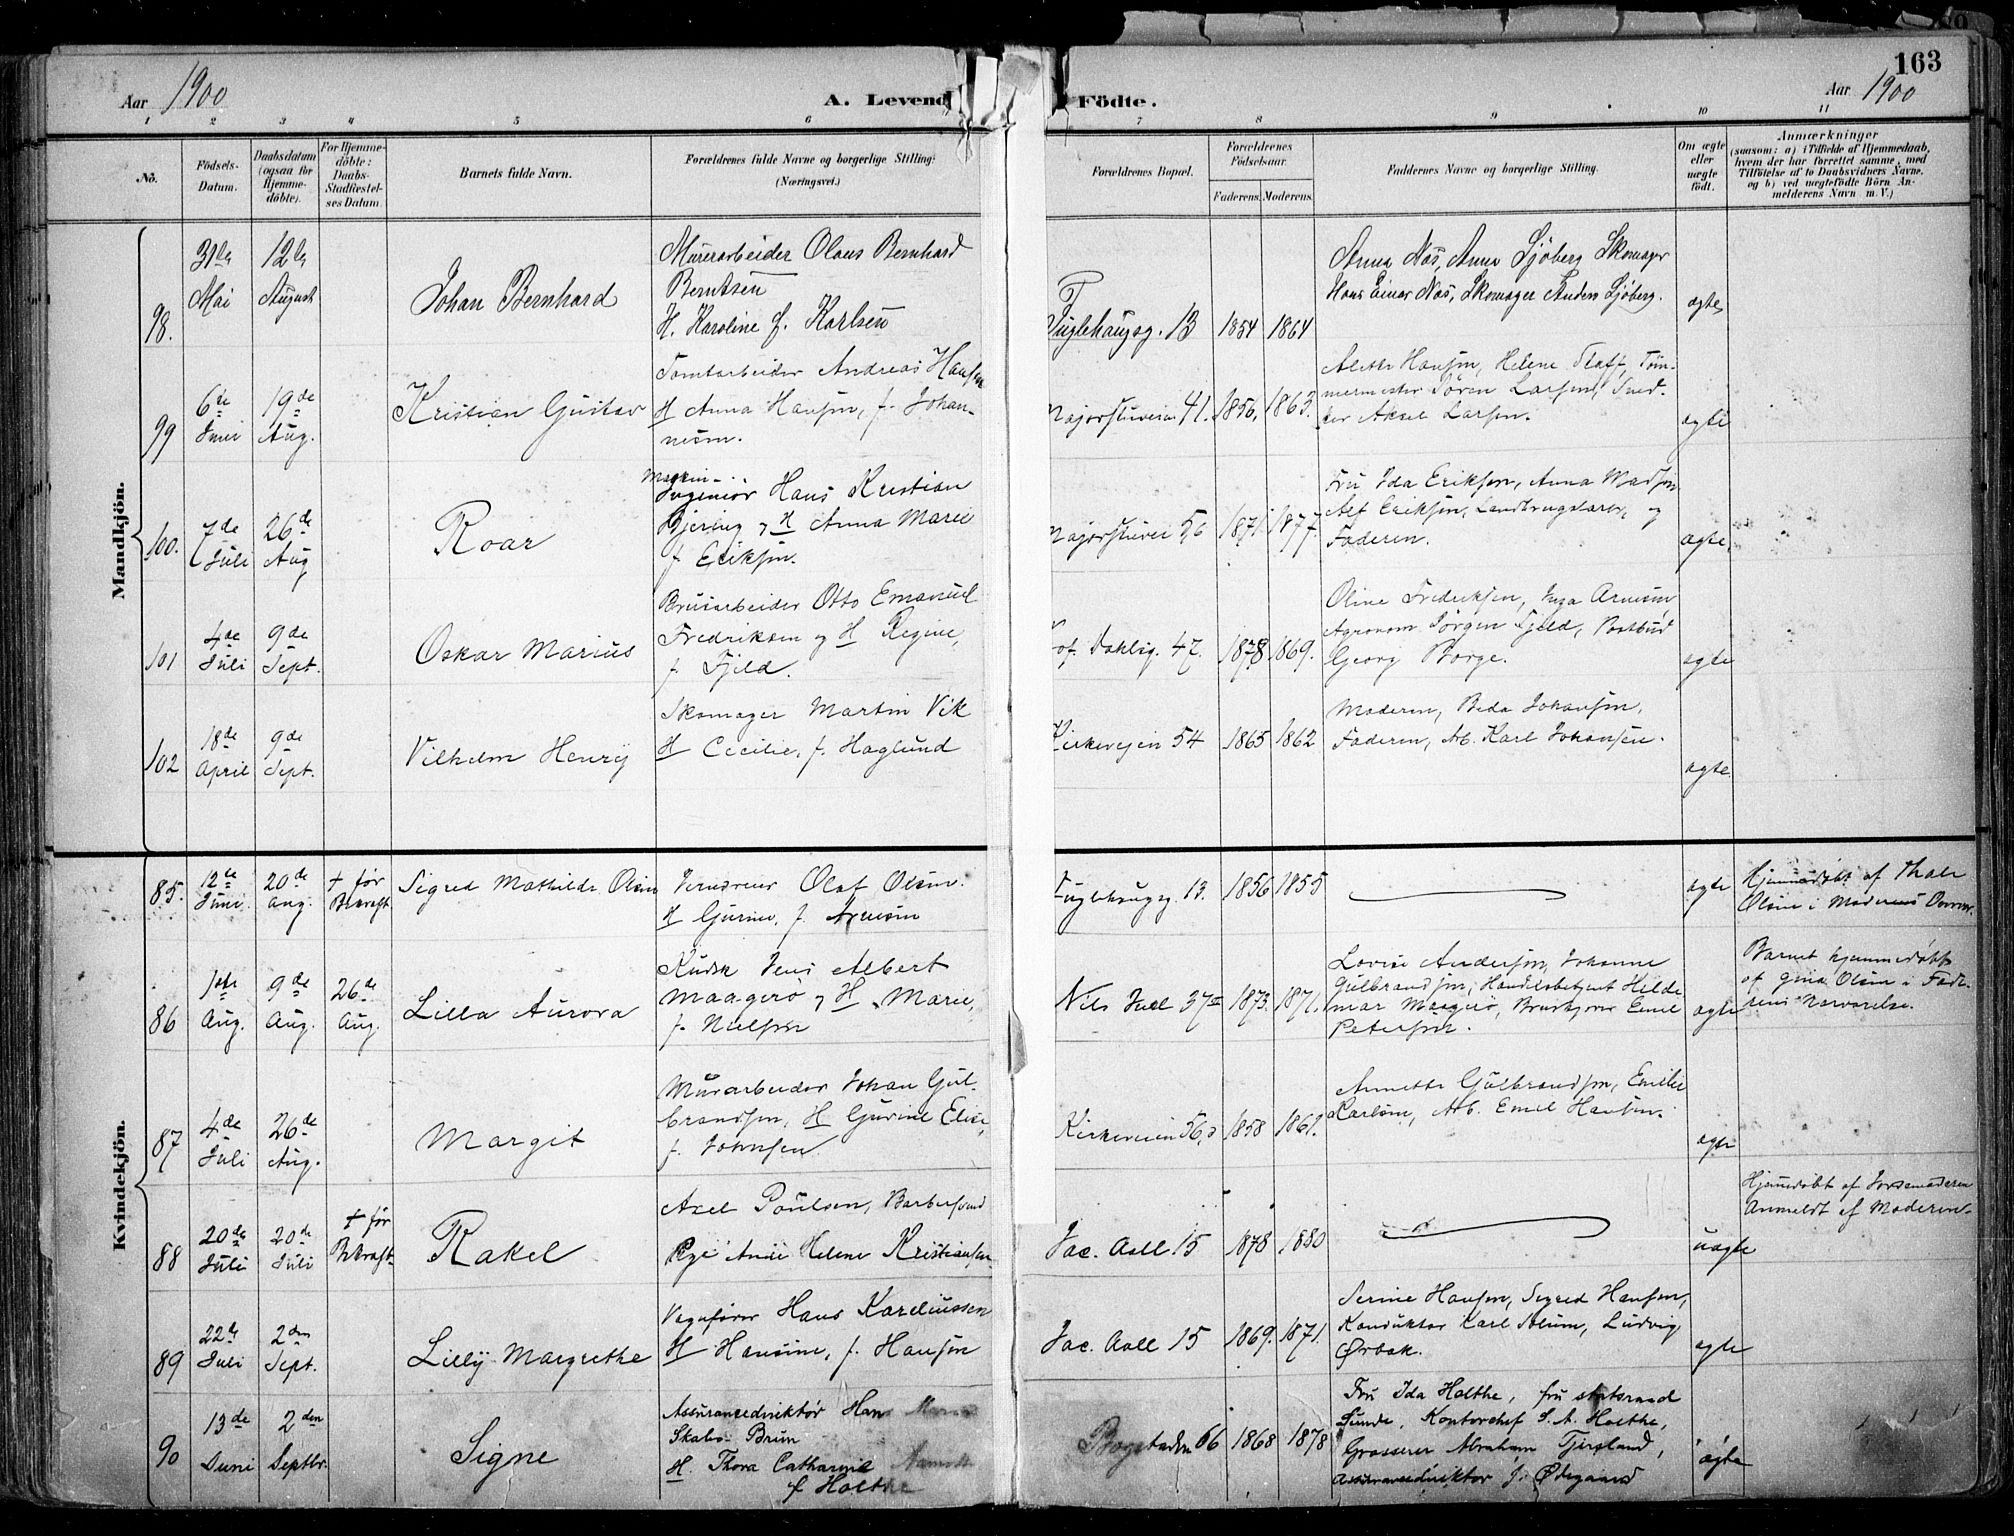 163
Aar 1900
A. Levende Födte.
Aar 1900
1 2 3 4 5 6 7 8 9 10 11
No.
Födsels-
Datum.
Daabsdatum
(ogsaa for
Hjemme-
döbte).
For Hjemme-
döbte:
Daabs-
Stadfæstel-
ses Datum.
Barnets fulde Navn.
Forældrenes fulde Navne og borgerlige Stilling:
(Næringsvei.)
Forældrenes Bopæl.
Forældrenes
Födselsaar.
Faderens. Moderens.
Faddernes Navne og borgerlige Stilling.
Om ægte
eller
uægte
födt.
Anmærkninger
(saasom: a) i Tilfælde af Hjemmedaab,
hvem der har forrettet samme, med
Tilföielse af to Daabsvidners Navne.
og b) ved uægtefödte Börn An-
melderens Navn m. V.)
Mandkjön.
98.
31te
Mai
12te
August
Johan Bernhard
Murerarbeider Olaus Bernhard
Berntsen
H. Karoline f. Karlsen
Fuglehaugsg. 13
1854
1864
Anna Næs, Anna Sjöberg Skomager
Hans Einar Næs, Skomager Anders Sjöberg.
ægte
99
6te
Juni
19de
Aug.
Kristian Gustav
Tomtarbeider Andreas Hansen
H Anna Hansen, f. Johan-
nesen.
Majorstuveien 41.
1856.
1863.
Alette Hansen, Helene Staff, Töm-
mermester Sören Larsen, Sned-
ker Aksel Larsen.
ægte
100.
7de
Juli
26de
Aug
Roar
Maskin-
Ingeniör Hans Kristian
Bjering og H Anna Marie
f. Eriksen.
Majorstuvei 56
1871.
1877.
Fru Ida Eriksen, Anna Madsen
Alf Eriksen, Landbrugslærer, og
Faderen.
ægte.
101
4de
Juli
9de
Sept.
Oskar Marius
Brusarbeider Otto Emanuel
Fredriksen og H Regine,
f. Fjeld.
Sof. Dahlsg. 47.
1878
1869.
Oline Fredriksen, Inga Arnesen
Agronom Jörgen Fjeld, Postbud
Georg Borge.
ægte
102
18de
April
9de
Sept.
Vilhelm Henry
Skomager Martin Vik
H Cecilie, f. Haglund
Kirkeveien 54
1865
1862
Moderen, Beda Johansen,
Faderen, Arb. Karl Johansen.
ægte.
Kvindekjön.
85.
12te
Juni
20de
Aug.
+ för
Bekræft
Sigred Mathilde Olsen
Olaf Olsen.
H Gurine, f. Arnesen
Fuglehaugsg. 13.
1856
1855
ægte
Hjemmedöbt af Thale
Olsen i Moderens
86
1ste
Aug.
9de
Aug.
26de
Aug.
Lilla Aurora
Kudsk Jens Albert
Maagerö og H. Marie,
f. Nielsen
Nils Juel 37 II
1873.
1871.
Lovise Andersen, Johanne
Gulbrandsen, Handelsbetjent Hilde
mar Maagerö, Bruskjører Emil
Petersen.
ægte
Barnet hjemmedøbt
af Gina Olsen i Fade-
rens Nærværelse.
87
4de
Juli
26de
Aug.
Margit
Murarbeider Johan Gul-
brandsen, H Gurine Elise,
f. Johnsen
Kirkeveien 56,
1858
1861.
Annette Gulbrandsen, Emilie
Karlsen, Arb. Emil Hansen.
ægte
88
20de
Juli
20de
Juli
+ för
Bekræft.
Rakel
Axel Poulsen, Barbersvend
Pge Helene Kristiansen
Jac. Aall 15
1878
1880
uægte
Hjemmedöbt af Jordemoderen
Anmeldt af Moderen.
89
22de
Juli
2den
Sept.
Lilly Margrethe
Vognfører Hans Kareliussen
H Hansine, f. Hansen
Jac. Aall 15
1869.
1871.
Serine Hansen, Sigred Hansen,
Konduktør Karl Ludvig
Ørbæk.
ægte
90
13de
Juni
2den
Septbr.
Signe
Assurancedirektør Hans
Skabo Brun
H. Thora Catharine
f Holthe
Bogstadvn 66
1868
1878
Fru Ida Holthe, fru statsraad
Sunde, Kontorchef S. A. Holthe,
Grosserer Abraham Tjersland,
Assurancedirektør J. Ødegaard
ægte